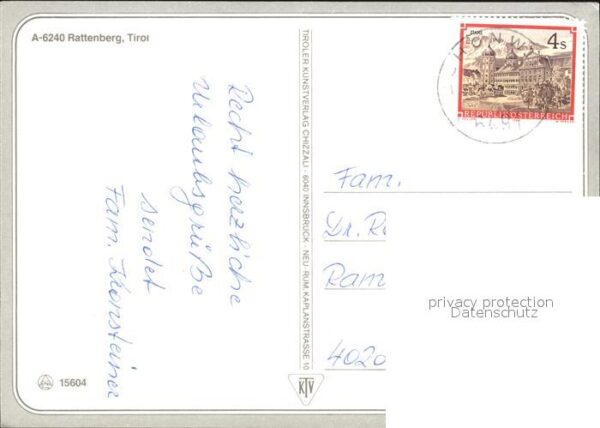 A-6240 Rattenberg, Tirol
Recht herzliche
Urlaubsgrüße
sendet
Fam.
TIROLER KUNSTVERLAG CHIZZALI · 6040 INNSBRUCK - NEU RUM, KAPLANSTRASSE 10
STAMS
4 S
REPUBLIK ÖSTERREICH
Fam.
Dr.
Ram
4020
privacy protection
Datenschutz
15604
KTV